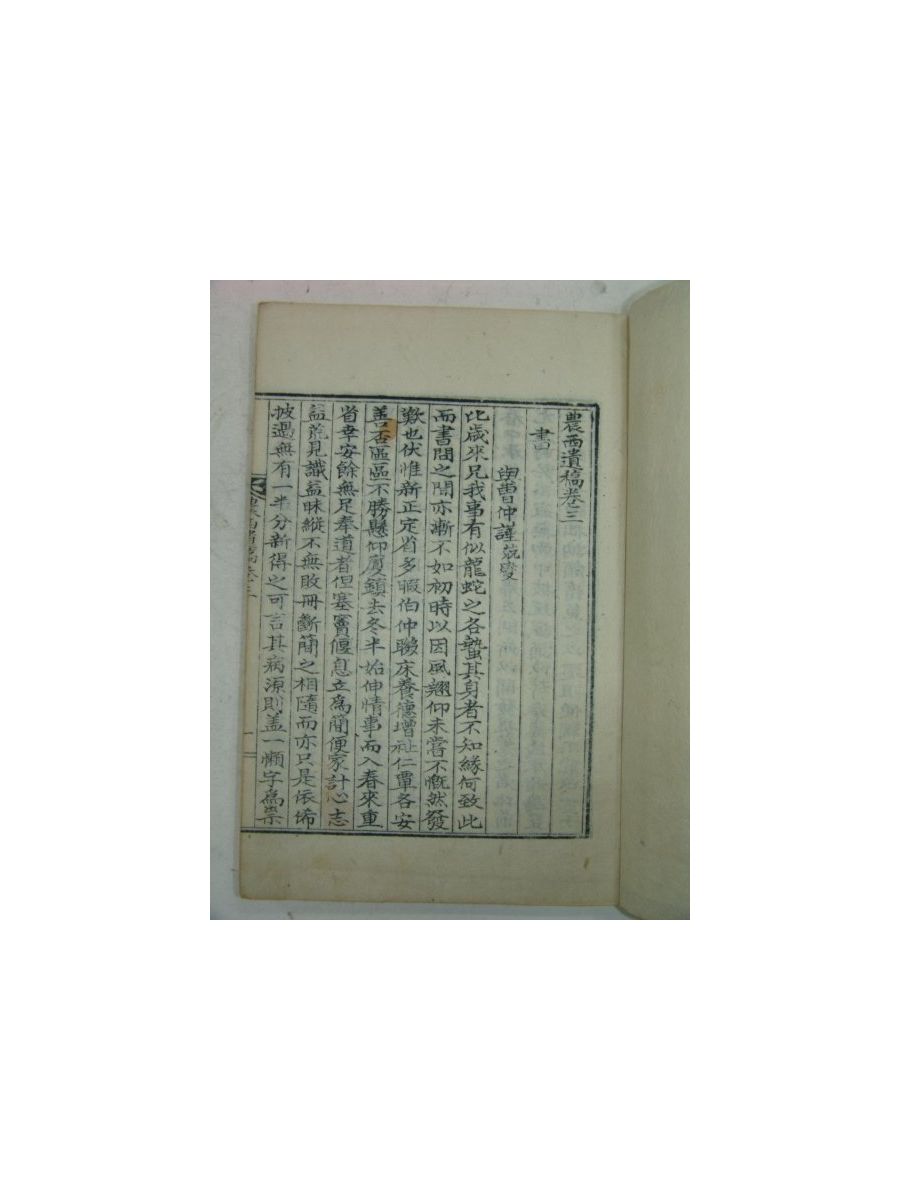 農西遺稿卷三
書
與曺仲謹兢燮
比歲來兄我事有似龍蛇之各蟄其身者不知緣何致此
而書問之間亦漸不如初時以因風翹仰未嘗不慨然發
歎也伏惟新正定省多暇伯仲聯床養德增祉仁覃各安
善否區區不勝懸仰廈鎭去冬半始伸情事而入春來重
省幸安餘無足奉道者但塞竇偃息立爲簡便家計心志
益荒見識益昧縱不無敗冊斷簡之相隨而亦只是依俙
披過無有一半分新得之可言其病源則盖一懶字爲祟
農西遺稿卷三
一